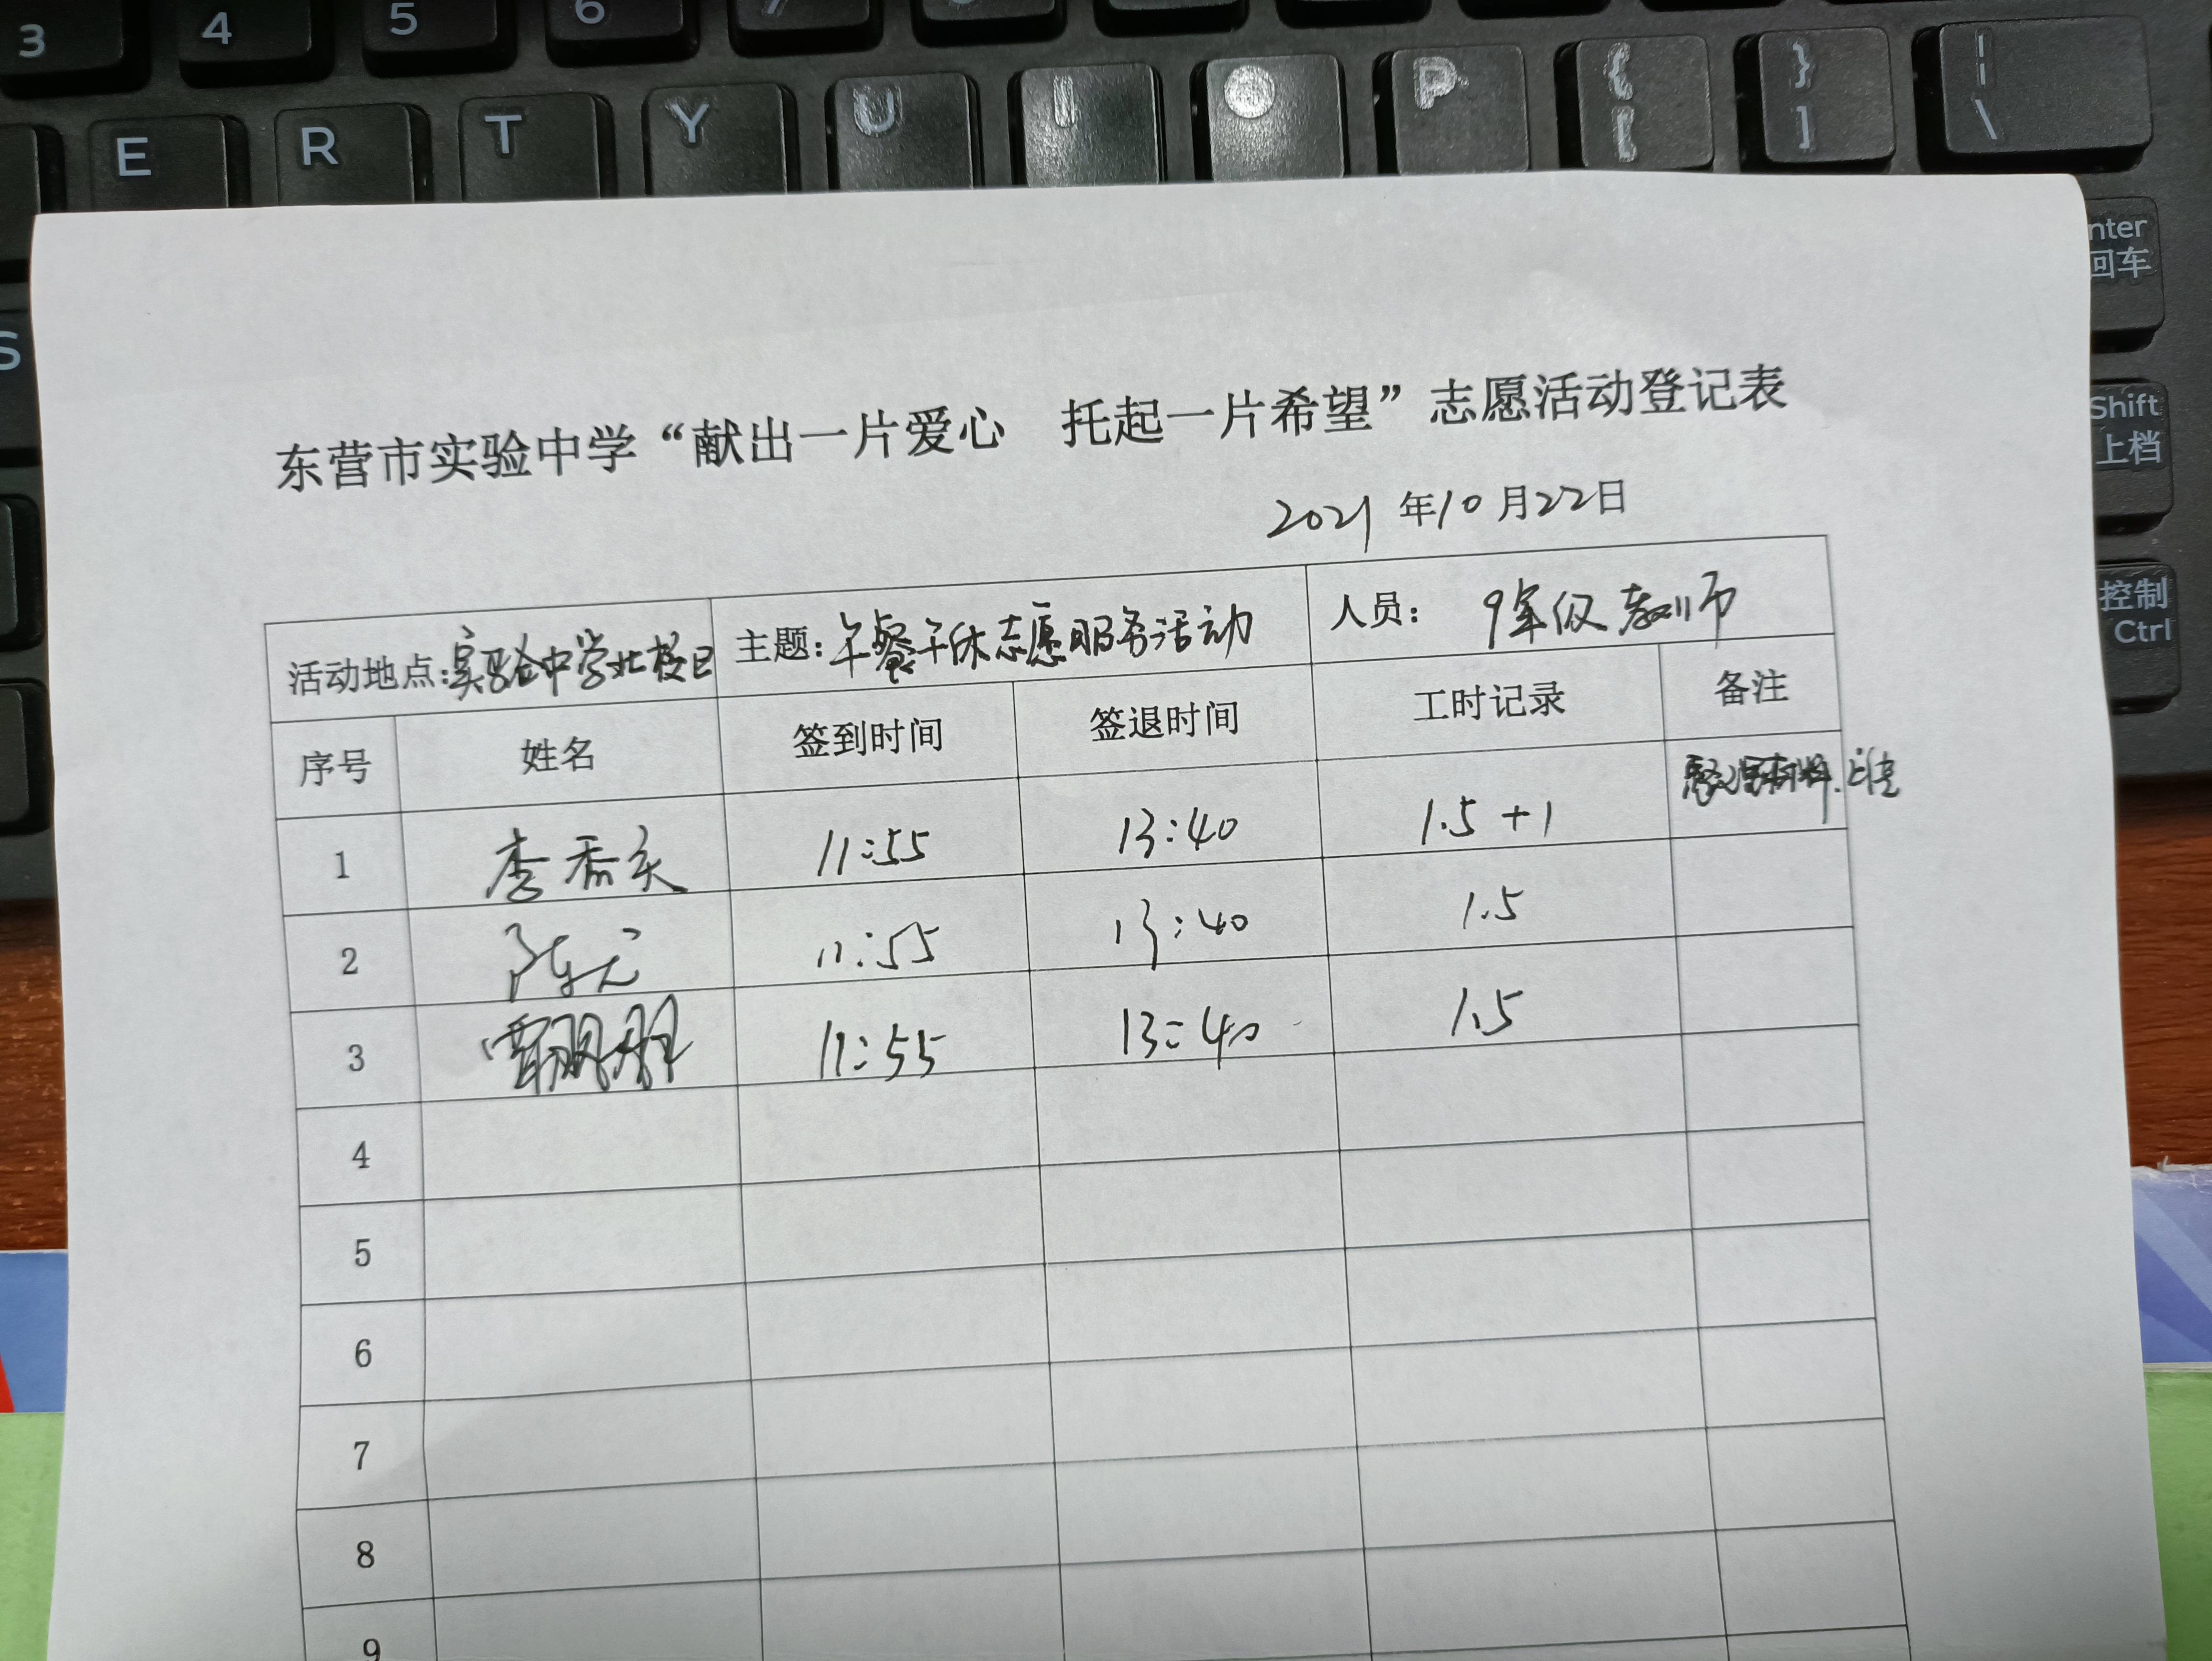 3 4 5 6
E R T Y U I O P { [ } ] | \
S
nter
回车
Shift
上档
控制
Ctrl
东营市实验中学“献出一片爱心 托起一片希望”志愿活动登记表
2021 年10月22日
活动地点:实验中学北校区 主题:午餐午休志愿服务活动 人员: 9年级教师
序号 姓名 签到时间 签退时间 工时记录 备注
1 李 11:55 13:40 1.5+1 整理材料.上传
2 陈 11:55 13:40 1.5
3 11:55 13:40 1.5
4
5
6
7
8
9